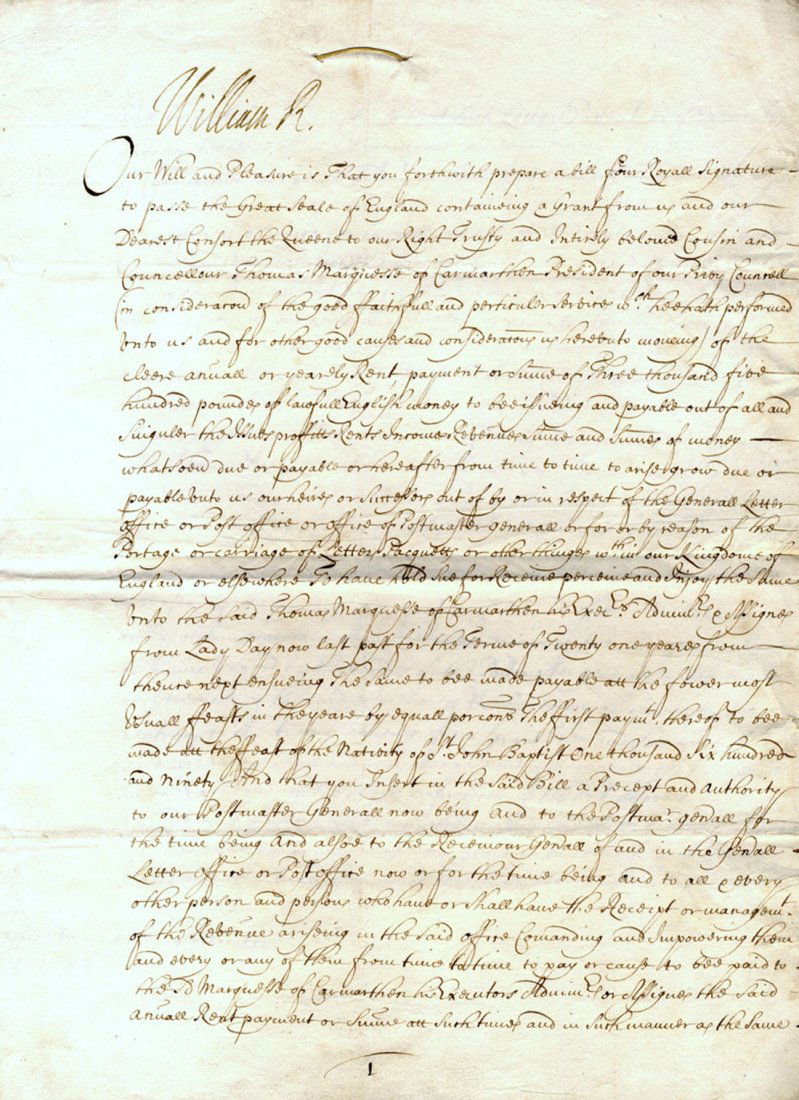 William R.
Our Will and Pleasure is That you forthwith prepare a bill for our Royall Signature
to passe the Great Seale of England containeing a Grant from us and our
Dearest Consort the Queene to our Right Trusty and Intirely beloved Cousin and
Councellour Thomas Marquesse of Carmarthen President of our Privy Councell
(in consideracon of the good ffaithfull and perticuler services wch hee hath performed
unto us and for other good causes and consideracons us hereunto moving) of the
cleere anuall or yearely Rent, payment or Sume of Three thousand five
hundred pounds of lawfull English money to bee issueing and payable out of all and
Singuler the Issues proffitts Rents Incomes Revenues Sume and Sumes of money
whatsoever due or payable or hereafter from time to time to arise grow due or
payable unto us our heires or Successors out of by or in respect of the Generall Letter
office or Post office or office of Postmaster generall or for or by reason of the
Portage or carriage of Letters Pacquetts or other thinges wthin our Kingdome of
England or elsewhere To have hold receive perceive and Injoy the same
unto the said Thomas Marquesse of Carmarthen his Execrs Adminrs & Assignes
from Lady Day now last past for the Terme of Twenty one yeares from
thence next ensueing The same to bee made payable att the fower most
Usuall ffeasts in the yeare by equall porcons The first paymt. thereof to bee
made att the ffeast of the Nativity of St. John Baptist One thousand Six hundred
and Ninety And that you Insert in the said Bill a Precept and Authority
to our Postmaster Generall now being and to the Postmar. genall for
the time being And alsoe to the Receivour Genall of and in the Genall
Letter office or Post office now or for the time being and to all & every
other person and persons who have or shall have the Receipt or managemt.
of the Revenue ariseing in the said office Comanding and Impowering them
and every or any of them from time to time to pay or cause to bee paid to
the sd Marquesse of Carmarthen his Executors Adminrs or Assignes the said
Anuall Rent payment or Sume att such times and in such manner as the same
1